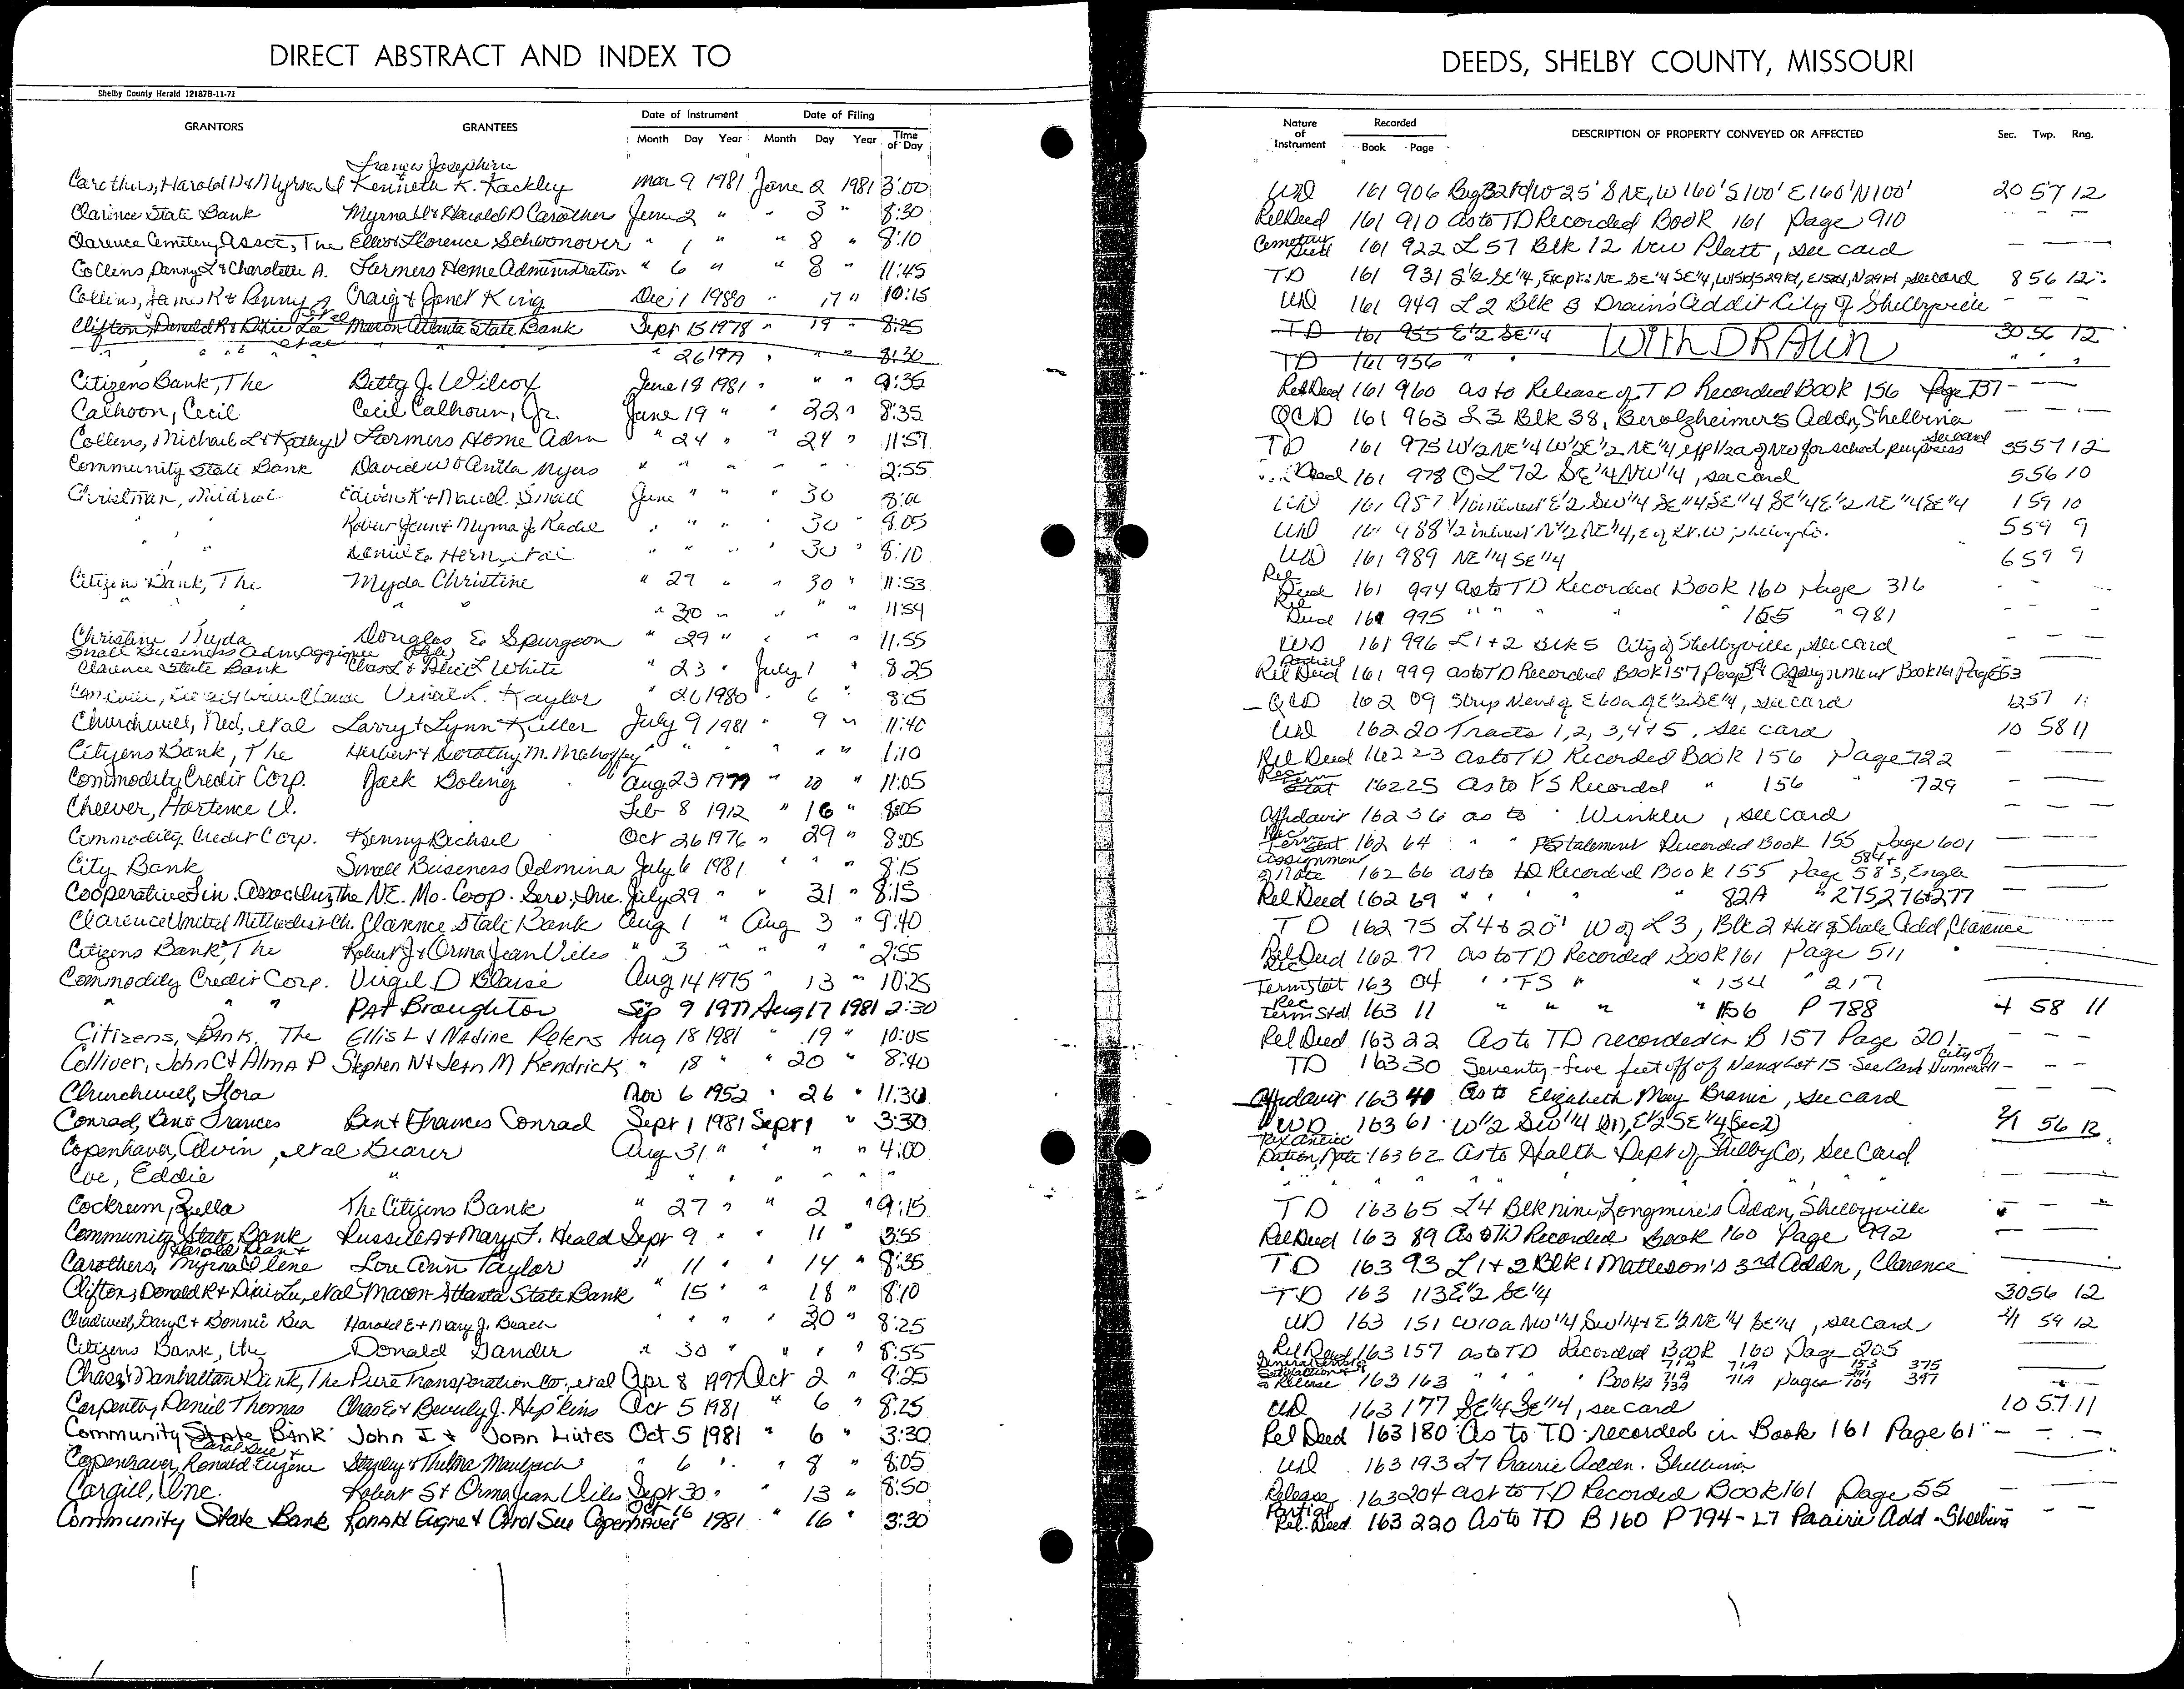 DIRECT ABSTRACT AND INDEX TO
Shelby County Herald 12187B-11-71
GRANTORS GRANTEES Date of Instrument Month Day Year Date of Filing Month Day Year Time of Day
Francis Josephine
Carothers, Harold D & Myrna U Kenneth K. Kackley Mar 9 1981 June 2 1981 3:00
Clarence State Bank Myrna U & Harold D Carother June 2 " " 3 " 8:30
Clarence Cemetery Assoc, The Florence Schoonover " 1 " " 8 " 8:10
Collins, Danny L & Charolette A. Farmers Home Administration " 6 " " 8 " 11:45
Collins, James R & Penny Craig & Janet King Dec 1 1980 " 17 " 10:15
Clifton, Donald R & Dixie Lu et al Macon Atlanta State Bank Sept 15 1978 " 19 " 8:25
" " " et al " " 26 1979 " " " 8:30
Citizens Bank, The Betty J. Wilcox June 18 1981 " " " 9:35
Calhoon, Cecil Cecil Calhoun, Jr. June 19 " " 22 " 8:35
Collins, Michael L & Kathy Farmers Home Adm " 24 " " 24 " 11:59
Community State Bank David W & Anita Myers " " " " " " 2:55
Christman, June " " " 30
" " " " " " 30 " 8:05
" " " " " " 30 " 8:10
Citizens Bank, The Myda Christine " 29 " " 30 " 11:53
" " " 30 " " " " 11:54
Christine Myda Douglas E Spurgeon " 29 " " " " 11:55
Small Business Adm,
Clarence State Bank Chas L & Alice L White " 23 " July 1 " 8:25
Kaylor " 26 1980 " 6 " 8:05
Churchwell, Ned, et al Larry & Lynn Keller July 9 1981 " 9 " 11:40
Citizens Bank, The Herbert & Dorothy M. Mahaffey " " " " " " 1:10
Commodity Credit Corp. Jack Boling Aug 23 1979 " 10 " 11:05
Cheever, Hortence V. Feb 8 1912 " 16 " 8:05
Commodity Credit Corp. Kenny Bichsel Oct 26 1976 " 29 " 8:05
City Bank Small Buiseness Admina July 6 1981 " " " 8:15
NE. Mo. Coop. Serv., Inc. July 29 " " 31 " 8:15
Clarence United Methodist Ch. Clarence State Bank Aug 1 " Aug 3 " 9:40
Citizens Bank, The Robert J & Orma Jean Viles " 3 " " " " 2:55
Commodity Credit Corp. Virgil D Blaise Aug 14 1975 " 13 " 10:25
" " " PAt Broughton Sep 9 1977 Aug 17 1981 2:30
Citizens, Bank, The Ellis L & NAdine Peters Aug 18 1981 " 19 " 10:05
Colliver, John C & Alma P Stephen N & Jean M Kendrick " 18 " " 20 " 8:40
Churchwell, Flora Nov 6 1952 " 26 " 11:30
Conrad, Ben & Frances Ben & Frances Conrad Sept 1 1981 Sept 1 " 3:30
Copenhaver, Alvin, et al Bearer Aug 31 " " " " 4:00
Coe, Eddie " " " " " " "
Cockrum, Zella The Citizens Bank " 27 " " 2 " 9:15
Community State Bank Russell A & Mary F. Heald Sept 9 " " 11 " 3:55
Harold Dean &
Carothers, Myrna Ulene Lou Ann Taylor " 11 " " 14 " 8:35
Clifton, Donald R & Dixie Lu, et al Macon-Atlanta State Bank " 15 " " 18 " 8:10
Chadwell, Gary C & Bonnie Bea Harold E & Mary J. Beach " " " " 30 " 8:25
Citizens Bank, the Donald Gander " 30 " " " " 8:55
Chase Manhattan Bank, The Pure Transportation Co., et al Apr 8 1997 Oct 2 " 9:25
Carpenter, Daniel Thomas Chas E & Beverly J. Hopkins Oct 5 1981 " 6 " 8:25
Community State Bank John I & JoAnn Liutes Oct 5 1981 " 6 " 3:30
Carol Sue &
Copenhaver, Ronald Eugene Stanley & Thelma Maubach " 6 " " 8 " 8:05
Cargill, Inc. Robert S & Orma Jean Viles Sept 30 " " 13 " 8:50
Community State Bank Ronald Eugne & Carol Sue Copenhaver Oct 16 1981 " 16 " 3:30
DEEDS, SHELBY COUNTY, MISSOURI
Nature of Instrument Recorded Book Page DESCRIPTION OF PROPERTY CONVEYED OR AFFECTED Sec. Twp. Rng.
WD 161 906 Beg 32 Rd W 25' S NE, W 160' S 100' E 160' N 100' 20 57 12
Rel Deed 161 910 as to TD Recorded Book 161 Page 910 - - -
Cemetery Deed 161 922 L 57 Blk 12 New Platt, see card
TD 161 931 S½ SE¼, Except: NE SE¼ SE¼, see card 8 56 12
WD 161 949 L 2 Blk 8 Drain's Addit City of Shelbyville - - -
TD 161 955 E½ SE¼ WithDRAWN 30 56 12
TD 161 956 " " " " "
Rel Deed 161 960 as to Release of TD Recorded Book 156 Page 737 - - -
QCD 161 963 L 3 Blk 38, Berolzheimer's Addn, Shelbina
TD 161 975 W½ NE¼ W½ E½ NE¼ for school purposes see card 35 57 12
Deed 161 978 OL 72 SE¼ NW¼, see card 5 56 10
WD 161 987 E½ SW¼ SE¼ SE¼ SE¼ E½ NE¼ SE¼ 1 59 10
WD 161 988 ½ interest N½ NE¼, 5 59 9
WD 161 989 NE¼ SE¼ 6 59 9
Rel Deed 161 994 as to TD Recorded Book 160 Page 316
Rel Deed 161 995 " " " " 155 " 981
WD 161 996 L 1 + 2 Blk 5 City of Shelbyville, see card
Partial Rel Deed 161 999 as to TD Recorded Book 157 Page Assignment Book 161 Page 553
QCD 162 09 Strip N end of E 60a of E½ SE¼, see card 12 57 11
WD 162 20 Tracts 1, 2, 3, 4 & 5, see card 10 58 11
Rel Deed 162 23 as to TD Recorded Book 156 Page 722
Rec Term Stat 162 25 as to FS Recorded " 156 " 729
Affidavit 162 36 as to Winkler, see card
Rec Term Stat 162 64 " " FStatement Recorded Book 155 Page 601
Assignment of Note 162 66 as to TD Recorded Book 155 Page 583, 584 + Engle
Rel Deed 162 69 " " " " 82A " 275, 276 & 277
TD 162 75 L 4 & 20' W of L 3, Blk 2 Hill & Shale Add, Clarence
Rel Deed 162 97 as to TD Recorded Book 161 Page 511
Rec Term Stat 163 04 " " FS " " 154 " 217
Rec Term Stat 163 11 " " " " 156 P 788 4 58 11
Rel Deed 163 22 As to TD recorded in B 157 Page 201 - - -
TD 163 30 Seventy-five feet off of N end Lot 15 - See Card City of Hunnewell - - -
Affidavit 163 40 As to Elizabeth May Branic, see card
WD 163 61 W½ SW¼ (1), E½ SE¼ (Sec 2) 2/1 56 12
Tax Anticipation Note 163 62 As to Health Dept of Shelby Co, See Card
" " " " " " "
TD 163 65 L 4 Blk nine, Longmire's Addn, Shelbyville
Rel Deed 163 89 As to TD Recorded Book 160 Page 992
TD 163 93 L 1 + 2 Blk 1 Matteson's 3rd Addn, Clarence
TD 163 113 E½ SE¼ 30 56 12
WD 163 151 W 10a NW¼ SW¼ & E½ NE¼ SE¼, see card 2/1 59 12
Rel Deed 163 157 as to TD Recorded Book 160 Page 205
Release 163 163 " " " Books 71A 71A Pages 375 397
WD 163 177 SE¼ SE¼, see card 10 57 11
Rel Deed 163 180 As to TD recorded in Book 161 Page 61 - - -
WD 163 193 L 7 Prairie Addn. Shelbina
Release 163 204 as to TD Recorded Book 161 Page 55
Partial Rel. Deed 163 220 As to TD B 160 P 794 - L7 Prairie Add - Shelbina - -